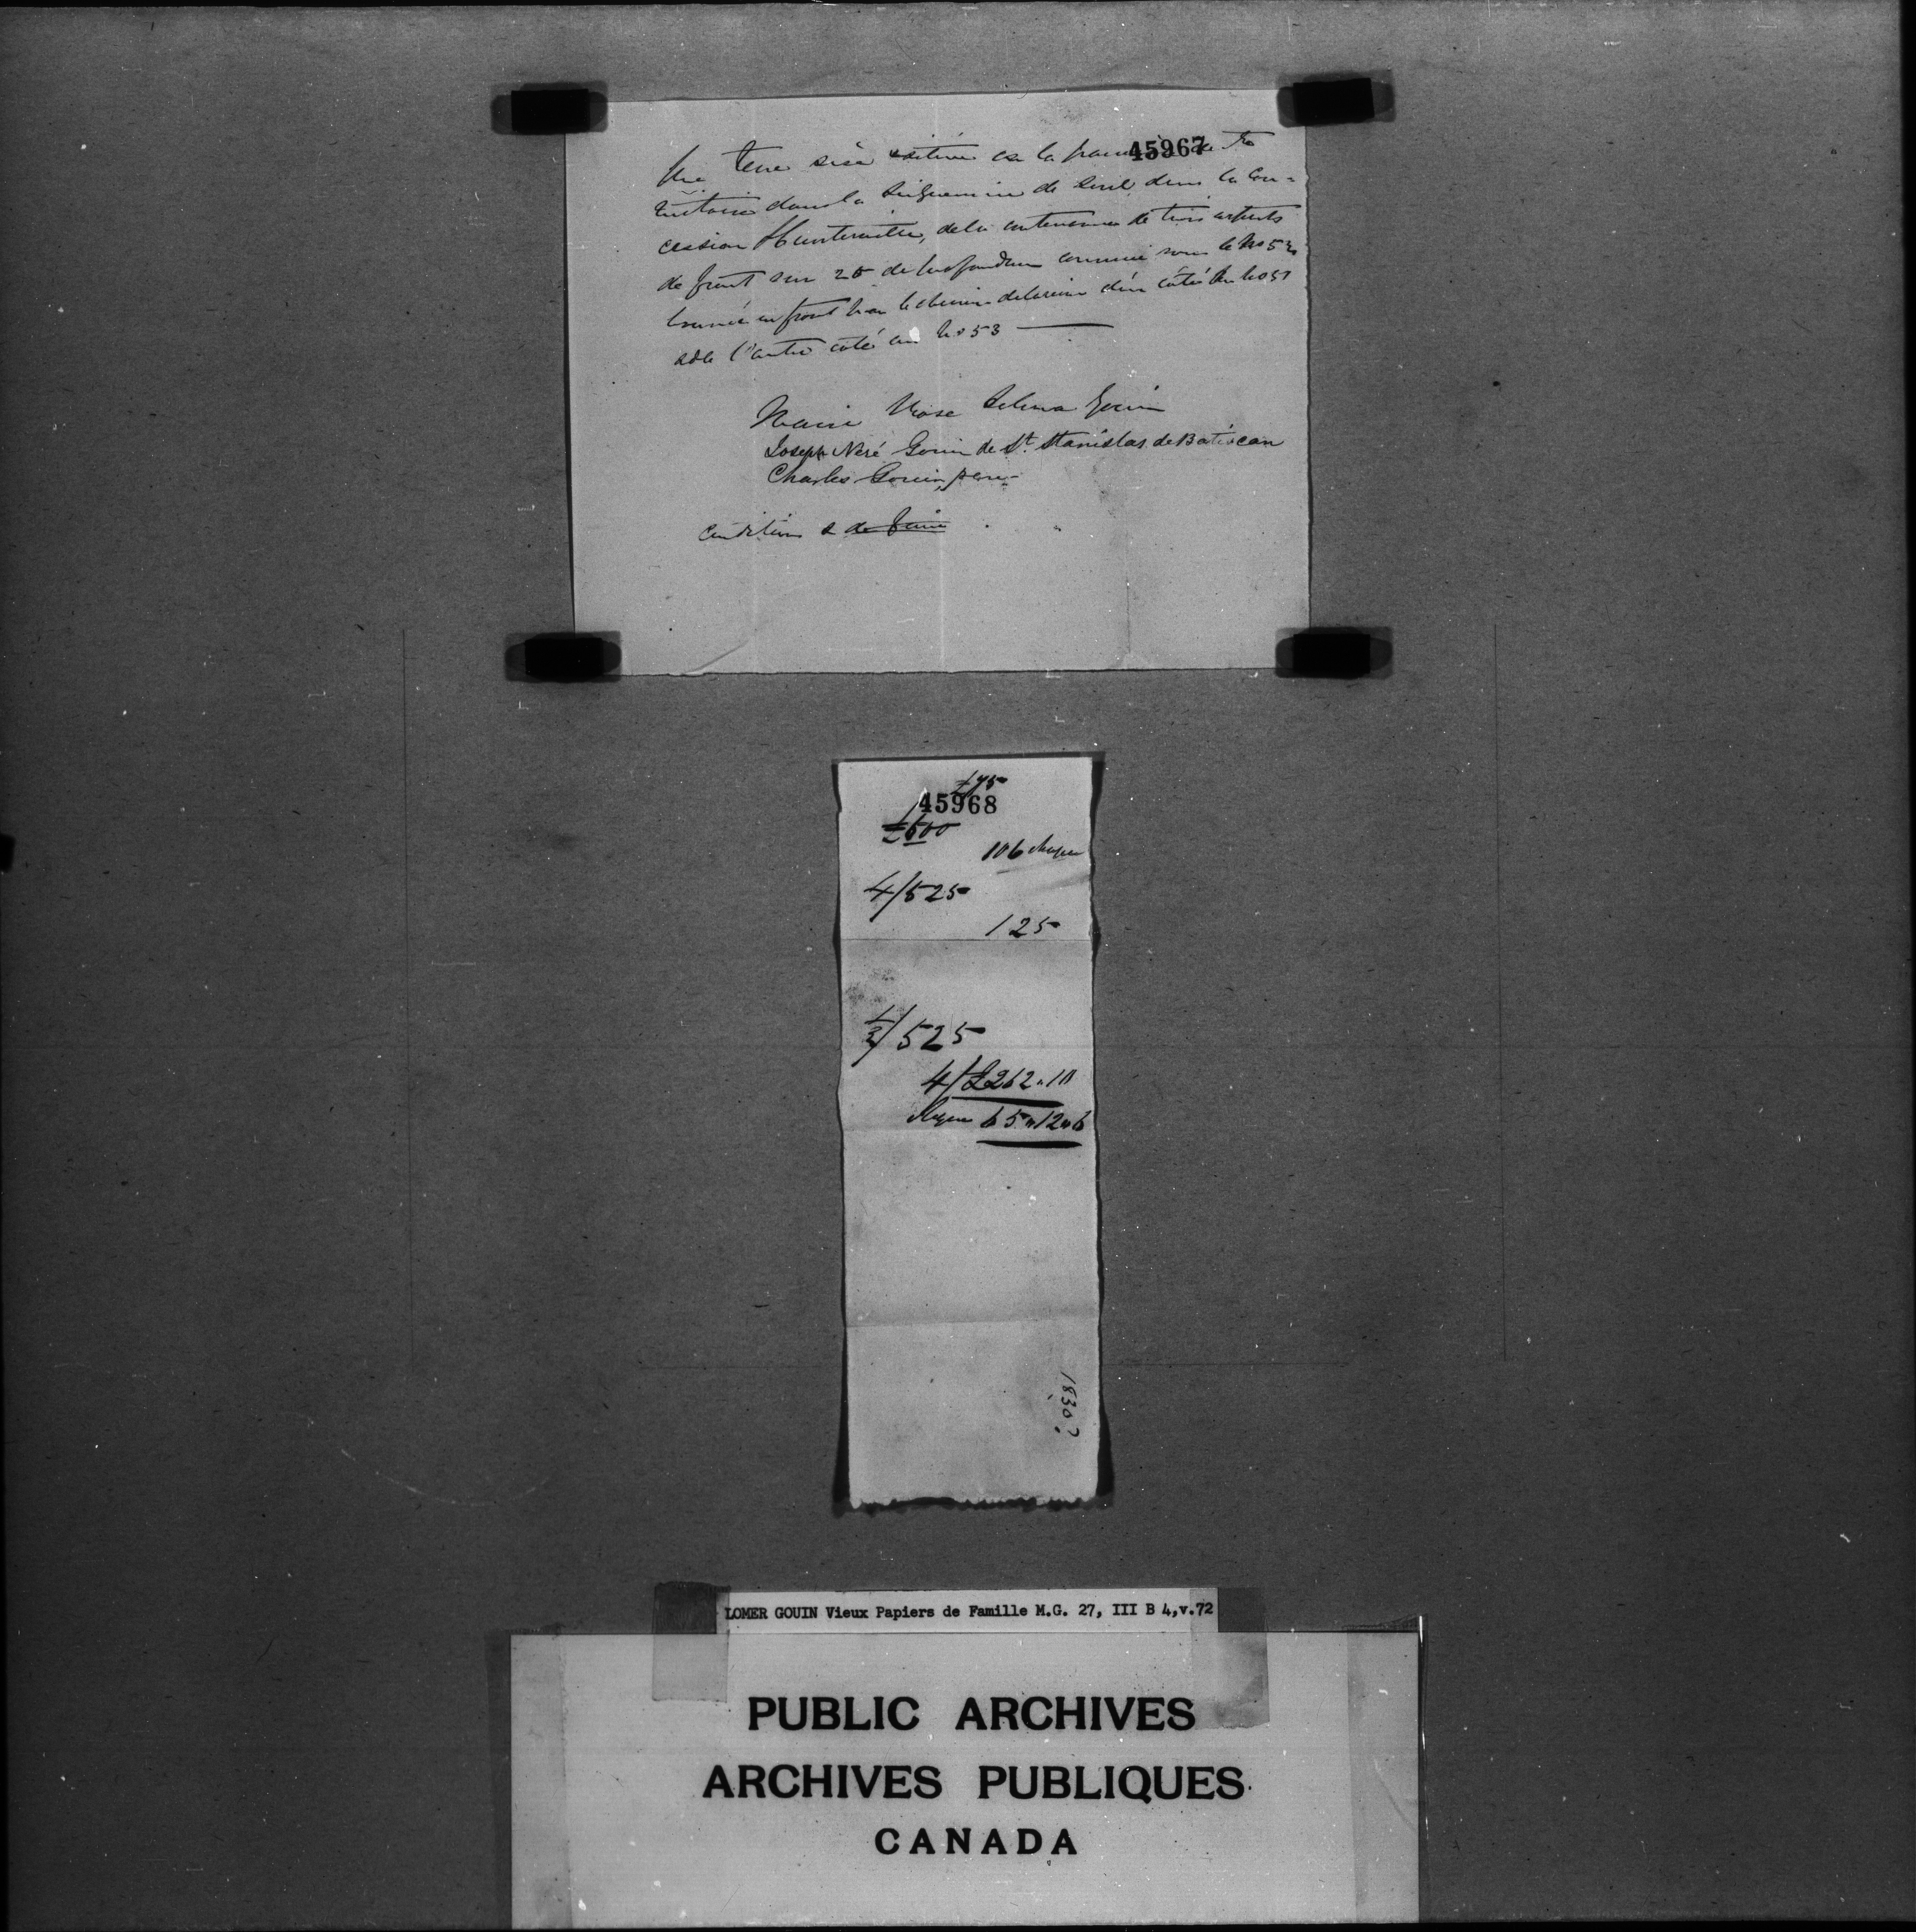 45967
Une terre sise située en la paroisse de Ste
Victoire dans la Seigneurie de Sorel dans la Con=
cession Hunterville, de la contenance de trois arpents
de front sur 20 de profondeur connue sous le No 52
bornée en front par le chemin de la reine d'un côté au No 51
& de l'autre côté au No 53
Marie Rose Selima Gouin
Joseph Néré Gouin de St. Stanislas de Batiscan
Charles Gouin, père
Conditions &
£75
45968
£600
106 chaque
4/525
125
1/2/525
4/£262"10
chaque 65"12"6
1830?
LOMER GOUIN Vieux Papiers de Famille M.G. 27, III B 4,v.72
PUBLIC ARCHIVES
ARCHIVES PUBLIQUES
CANADA